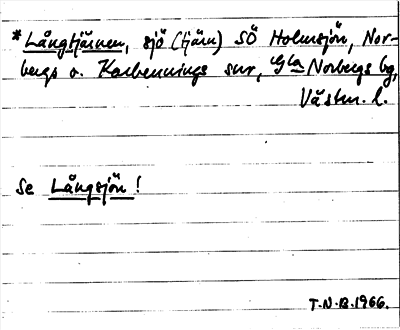 * Långtjärnen, sjö (tjärn) SÖ Holmsjön, Nor-
bergs o. Karbennings snr, Gla Norbergs bg,
Västm. l.
Se Långsjön!
T.N.B. 1966.